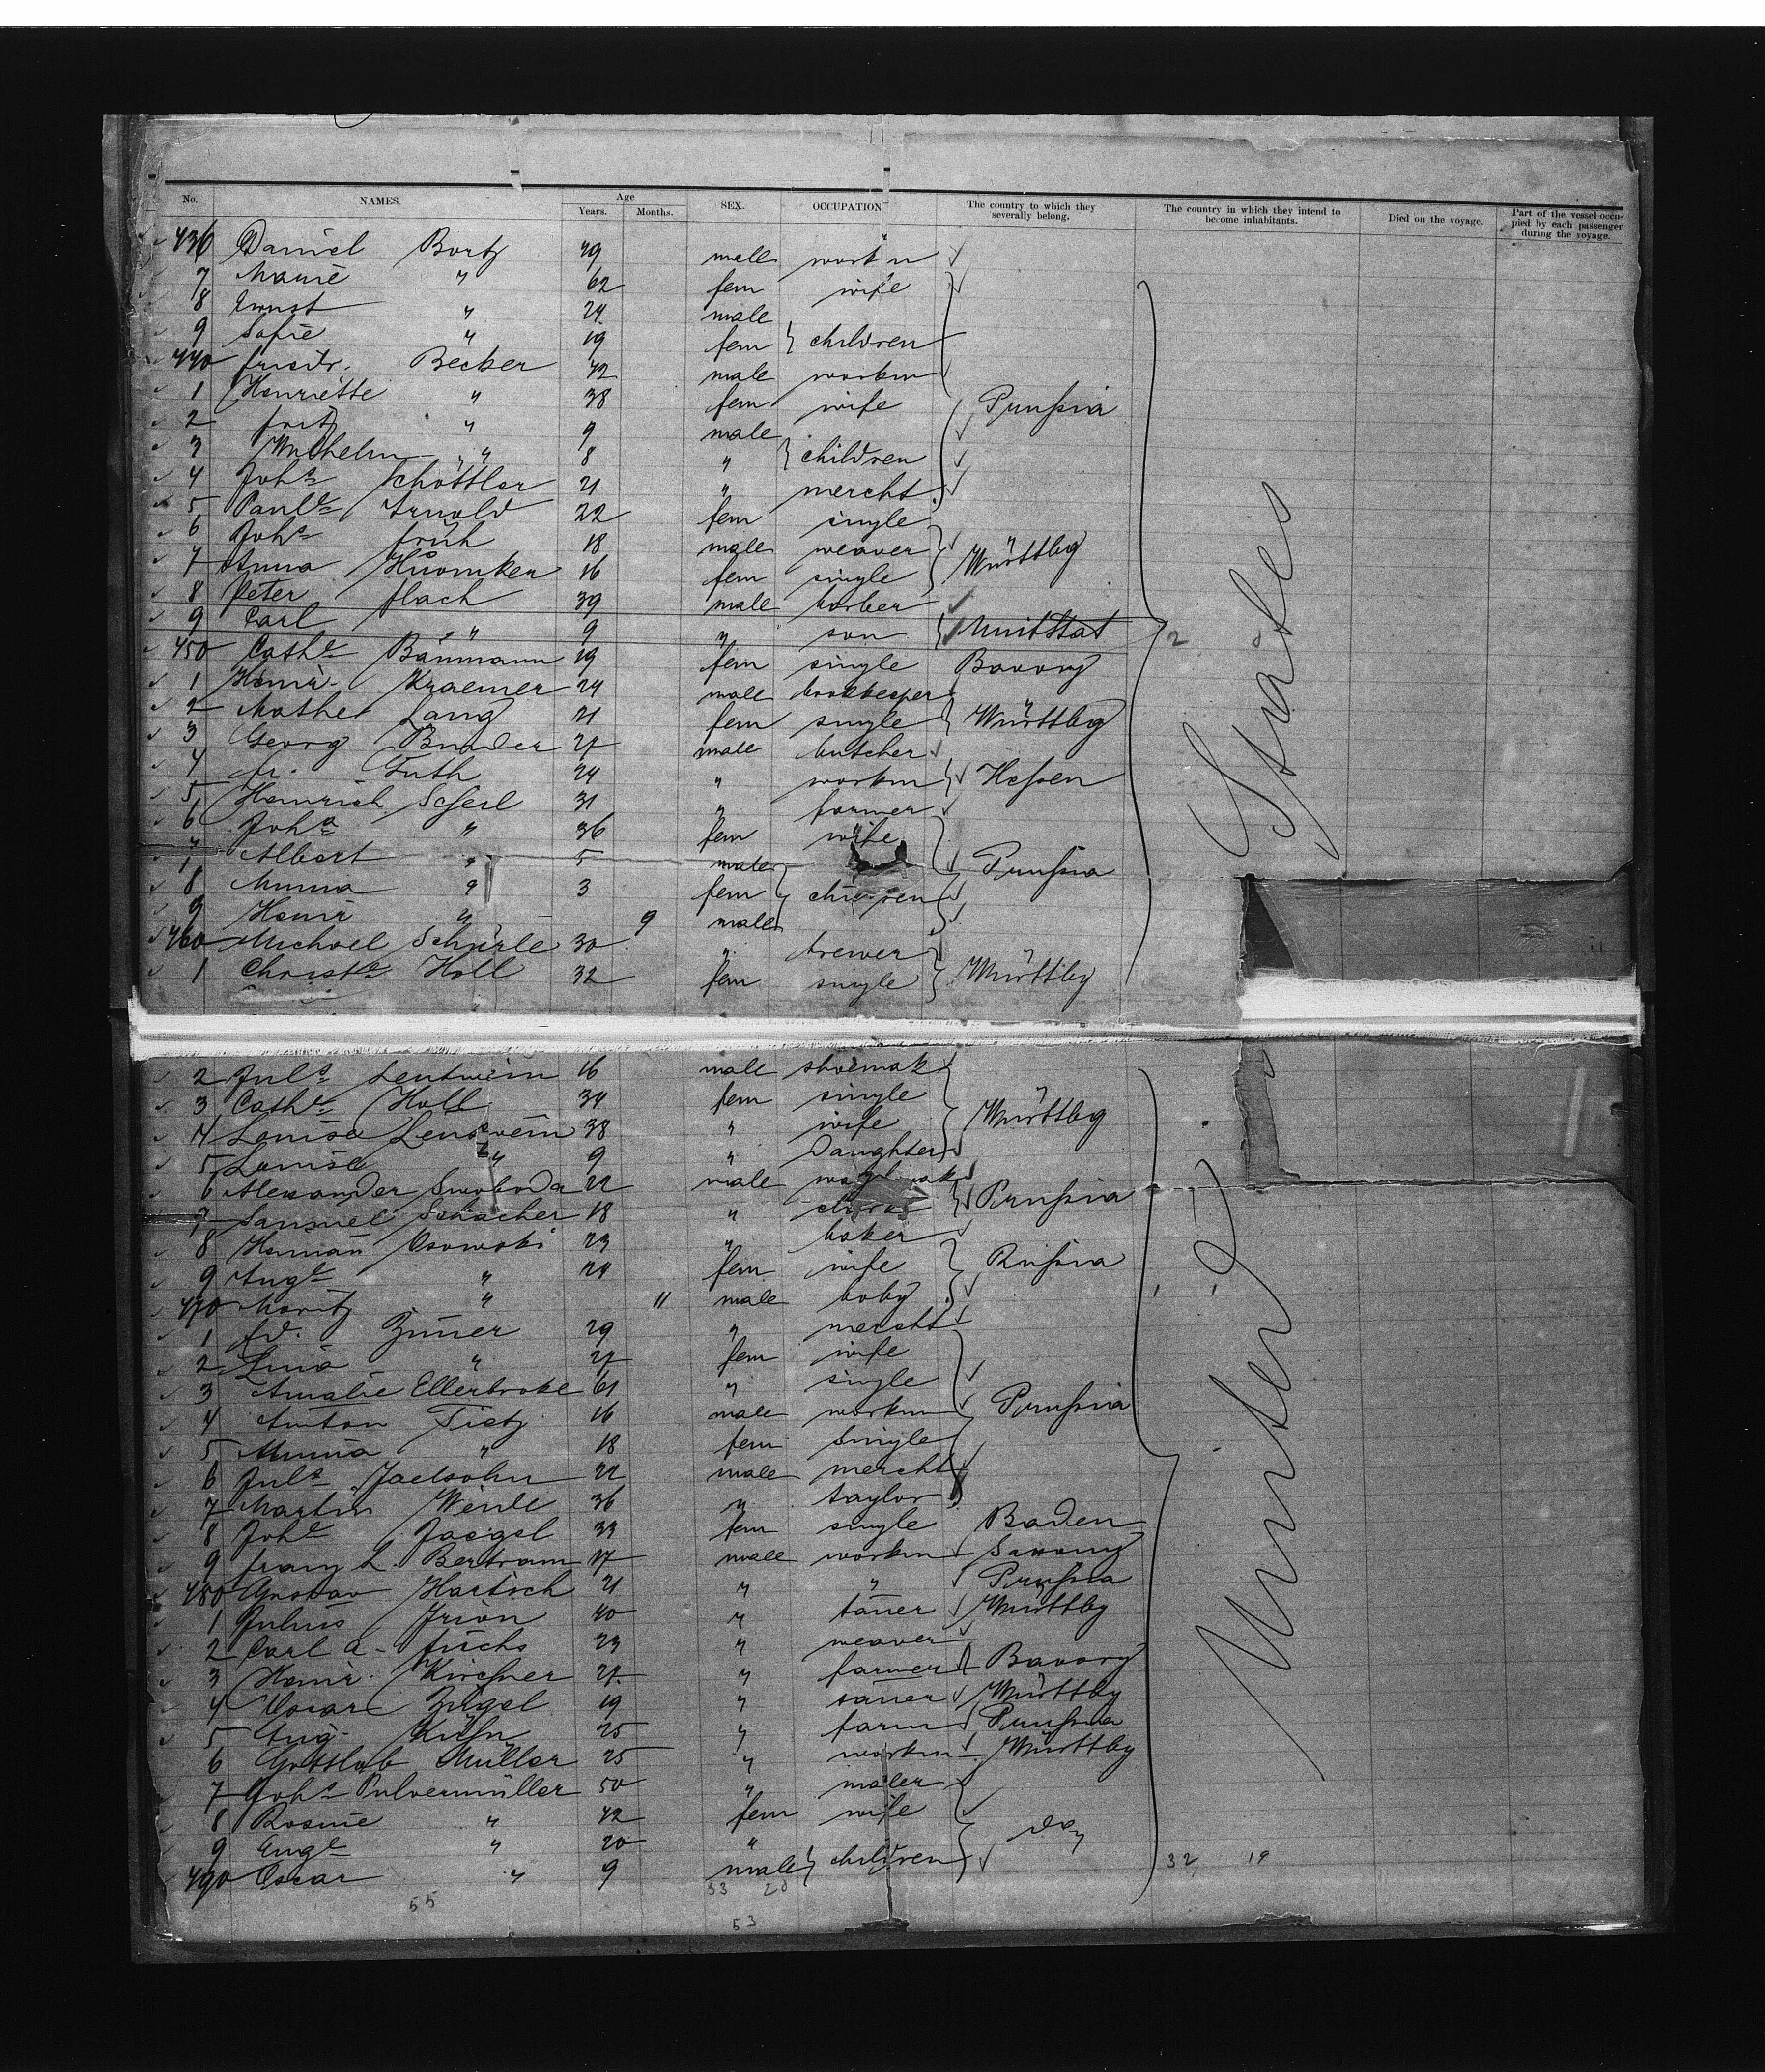 No. NAMES. Age Years. Months. SEX. OCCUPATION The country to which they severally belong. The country in which they intend to become inhabitants. Died on the voyage. Part of the vessel occupied by each passenger during the voyage.
436 Daniel Bortz male workn
7 " 62 fem wife
8 Ernst " 24 male
9 Sofie " 19 fem } children
440 Friedr. Becker 42 male workm
1 Henriette " 38 fem wife Prußia
2 Fritz " 9 male
3 Wilhelm " " 8 " } children
4 Joh.s Schöttler 21 " mercht
5 Paul.e Arnold 22 fem single
6 Joh.s Früh 18 male weaver
7 Anna 16 fem single Württbg
8 Peter Flach 39 male barber
9 Carl " " 9 " son UnitStat
450 Cath.e Bäumann 19 fem single Bavary
1 Heinr. Kraemer 24 male bookkeeper
2 Lang 21 fem single Württbg
3 Georg Binder 27 male butcher
4 Fr. 24 " workm Heßen
5 Heinrich 31 " farmer
6 Joh.a " 36 fem wife
7 Albert " 5 male
8 " 3 fem } children Prußia
9 Heinr " 9 male
460 Michael Schürle 30 " brewer
1 Christ.e Holl 32 fem single Württbg
2 Jul.s Leutwein 16 male shoemak
3 Cath.e Holl 34 fem single
4 Louise Leutwein 38 " wife Württbg
5 Louise " 9 " Daughter
6 Alexander Swoboda 22 male
7 Samuel Schacher 18 " Prußia
8 Herman Osowski 23 " baker
9 Aug.e " 24 fem wife Rußia
470 Moritz " 11 male baby
1 Fd. 29 " mercht
2 Lina " 27 fem wife
3 Amalie Ellerbroke 61 " single
4 Anton Tietz 16 male workm Prußia
5 " 18 fem single
6 Jul.s Jaelsohn 22 male mercht
7 Martin 36 " taylor
8 Joh.e Jaegel 33 fem single Baden
9 Franz L. Bertram 17 male workm Saxony
480 Gustav Hartsch 21 " " Prußia
1 Julius Irion 40 " tañer Württbg
2 Carl A. Fuchs 23 " weaver
3 Heinr. Kirchner 27 " farmer Bavary
4 Oscar Zügel 19 " tañer Württbg
5 Aug. Kühn 25 " farm Prußia
6 Gottlob Müller 25 " workm Württbg
7 Joh.s Pulvermüller 50 " maler
8 Rosine " 42 fem wife
9 Eug.e " 20 " do
490 Oscar " 9 male } children
United States
32 19
33 20
55
53